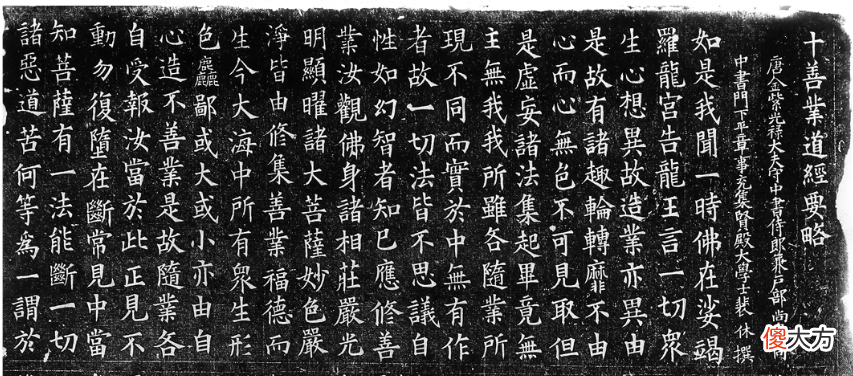 十善業道經要略
唐金紫光祿大夫守中書侍郎兼戶部尚同
中書門下平章事充集賢殿大學士裴休撰
如是我聞一時佛在娑竭
羅龍宮告龍王言一切衆
生心想異故造業亦異由
是故有諸趣輪轉靡不由
心而心無色不可見取但
是虛妄諸法集起畢竟無
主無我我所雖各隨業所
現不同而實於中無有作
者故一切法皆不思議自
性如幻智者知已應修善
業汝觀佛身諸相莊嚴光
明顯曜諸大菩薩妙色嚴
淨皆由修集善業福德而
生今大海中所有衆生形
色麤鄙或大或小亦由自
心造不善業是故隨業各
自受報汝當於此正見不
動勿復墮在斷常見中當
知菩薩有一法能斷一切
諸惡道苦何等爲一謂於
傻大方